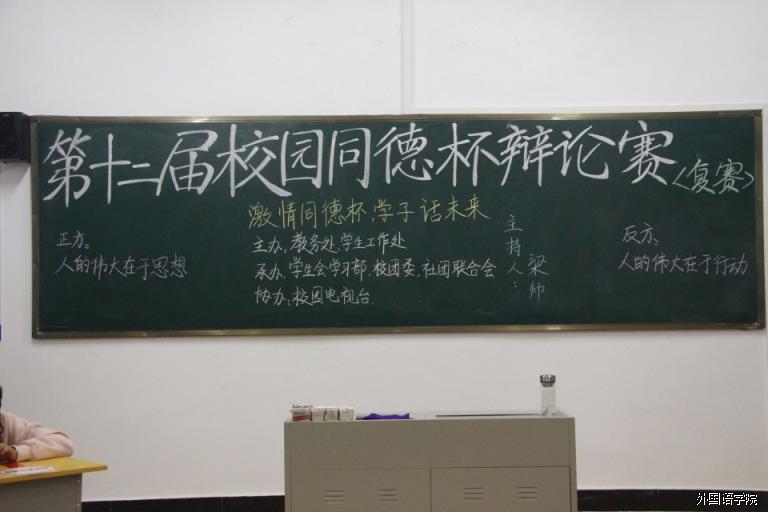 第十二届校园同德杯辩论赛
<复赛>
激情同德杯,学子话未来
正方:
人的伟大在于思想
主办:教务处、学生工作处
承办:学生会学习部、校团委、社团联合会
协办:校园电视台
主持人:梁帅
反方:
人的伟大在于行动
外国语学院